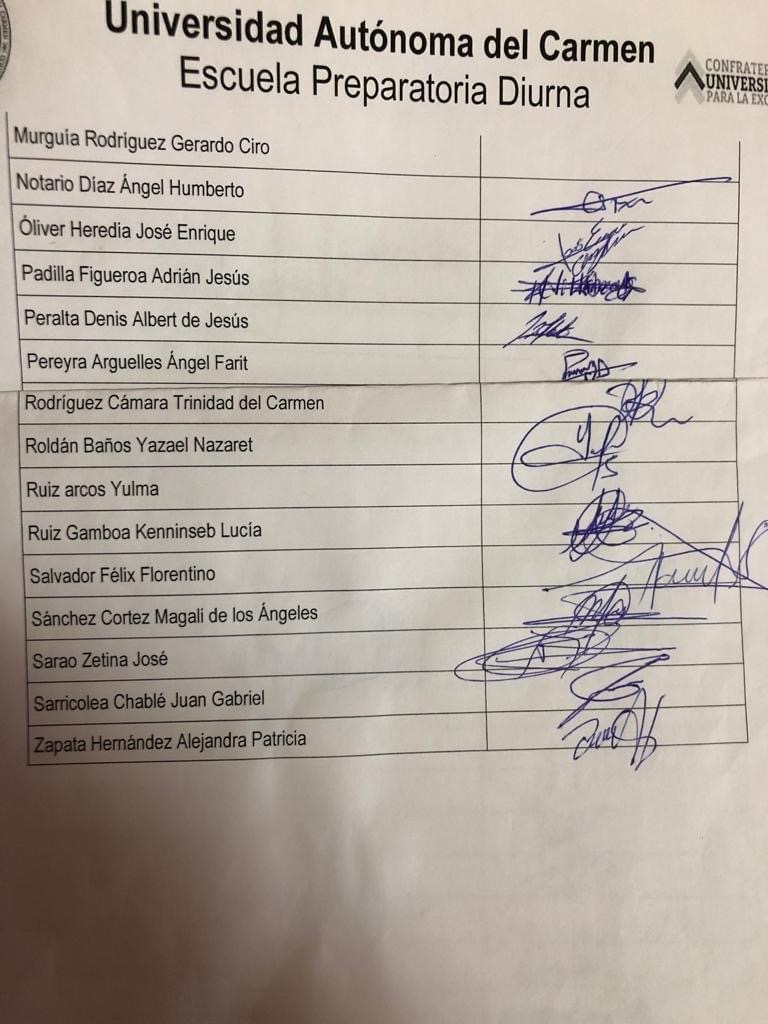 Universidad Autónoma del Carmen
Escuela Preparatoria Diurna
CONFRATER
UNIVERSI
PARA LA EXC
Murguía Rodríguez Gerardo Ciro
Notario Díaz Ángel Humberto
Óliver Heredia José Enrique
Padilla Figueroa Adrián Jesús
Peralta Denis Albert de Jesús
Pereyra Arguelles Ángel Farit
Rodríguez Cámara Trinidad del Carmen
Roldán Baños Yazael Nazaret
Ruiz arcos Yulma
Ruiz Gamboa Kenninseb Lucía
Salvador Félix Florentino
Sánchez Cortez Magali de los Ángeles
Sarao Zetina José
Sarricolea Chablé Juan Gabriel
Zapata Hernández Alejandra Patricia